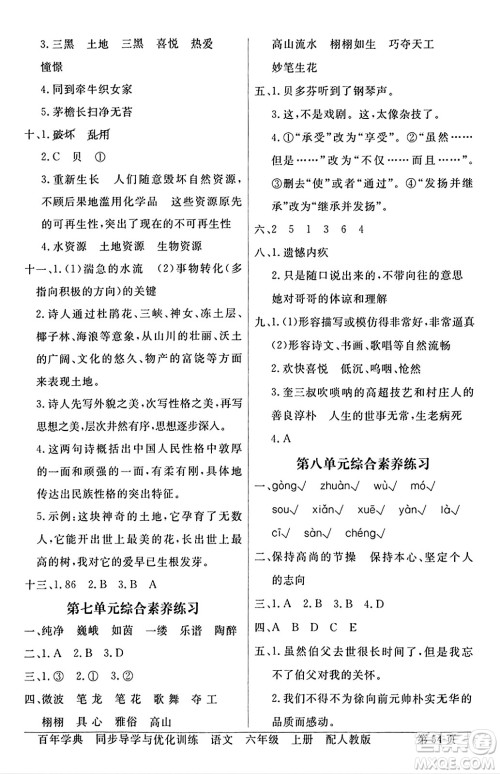 3. 三黑　土地　三黑　喜悦　热爱
憧憬
4. 同到牵牛织女家
5. 茅檐长扫净无苔
十、1. 破坏　乱用
2. C　贝　①
3. 重新生长　人们随意毁坏自然资源，
不顾后果地滥用化学品　这些资源的
不可再生　造成了资源的不可再生性
4. 水资源　土地资源　生物资源
十一、1. (1) 湍急的水流　(2) 事物转化(多
指向积极的方向)的关键
2. 诗人通过杜鹃花、三峡、神女、冻土层、
椰子林、海浪等意象，从山川的壮丽、沃土
的广阔、文化的悠久、物产的富饶等方面
来描绘土地。
3. 诗人先写外貌之美，次写性格之美，再写
思想之美，感情步步加深。
4. 这两句诗道出中国人民性格中丰厚的
一面和正直的一面，语言简洁，准确地传
达出民族性格的突出特征。
5. 示例：这块神奇的土地，它孕育了中华民
族，我对它的爱早已生根发芽。
十三、1. 86　2. B　3. B　A
第七单元综合素养练习
一、纯净　巍峨　如茵　一缕　乐谱　陶醉
二、1. B　2. D　3. A
三、1. ③　2. ①　3. ②
四、微波　笔龙　笔花　歌舞　夺工
栩栩　具心　雅俗　高士
高山流水　栩栩如生　巧夺天工
妙笔生花
五、1. 贝多芬听到了钢琴声。
2. 这不是戏剧。　3. 这，太像杂技了。
4. ①“承受”改为“享受”。　②“虽然……
但是……”改为“不仅……而且……”。
③删去“使”或者“通过”。　④“发扬并继
承”改为“继承并发扬”。
六、2　5　1　3　6　4
八、1. 遗憾内疚
2. 只是随口说说，并没有抱怨的意思
她对哥哥的体谅和理解
九、1. (1) 形容描写或模仿得非常好，非常逼真
(2) 形容诗文、书画、歌唱等自然流畅
2. 欢快喜悦　低沉、呜咽、怆然
3. 奎三叔吹唢呐的高超技艺和村庄人的
善良淳朴　人生的世事无常、生老病死
4. A
第八单元综合素养练习
一、gòng√　zhuàn√　wù√　mó√
sòu√　xiǎn√　xū√　là√
cī√　sàn√　chéng√
二、保持高尚的节操　保持本心，坚定个人
的志向
三、1. A　2. B　3. B　4. A
四、D　C　B　A
五、1. 虽然伯父去世很长时间了，但我们
依然想念伯父。
2. 我们不得不为徐向前元帅朴实无华
的本色所打动。
百年学典　同步导学与优化训练　语文　六年级　上册　配人教版　第64页